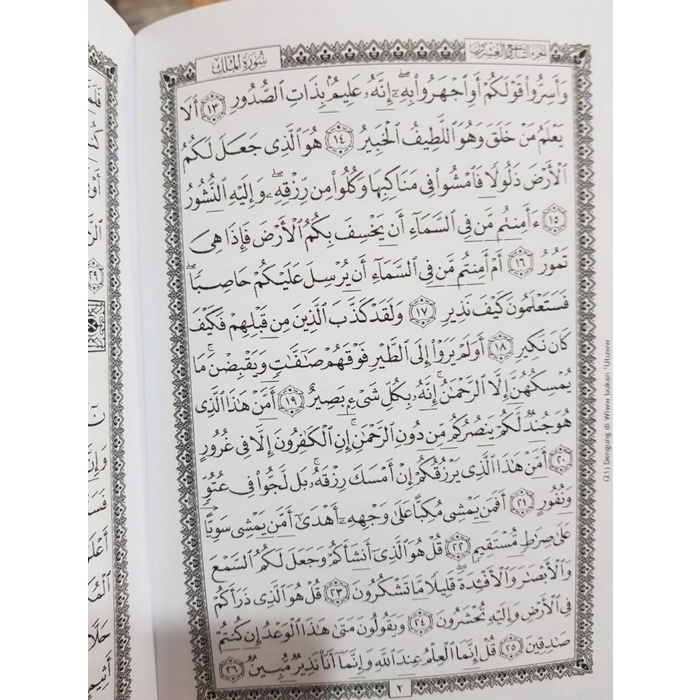 سُورَةُ الْمُلْكِ
الجزء التاسع والعشرون
وَأَسِرُّوا۟ قَوْلَكُمْ أَوِ ٱجْهَرُوا۟ بِهِۦٓ ۖ إِنَّهُۥ عَلِيمٌۢ بِذَاتِ ٱلصُّدُورِ ﴿١٣﴾ أَلَا
يَعْلَمُ مَنْ خَلَقَ وَهُوَ ٱللَّطِيفُ ٱلْخَبِيرُ ﴿١٤﴾ هُوَ ٱلَّذِى جَعَلَ لَكُمُ
ٱلْأَرْضَ ذَلُولًا فَٱمْشُوا۟ فِى مَنَاكِبِهَا وَكُلُوا۟ مِن رِّزْقِهِۦ ۖ وَإِلَيْهِ ٱلنُّشُورُ
﴿١٥﴾ ءَأَمِنتُم مَّن فِى ٱلسَّمَآءِ أَن يَخْسِفَ بِكُمُ ٱلْأَرْضَ فَإِذَا هِىَ
تَمُورُ ﴿١٦﴾ أَمْ أَمِنتُم مَّن فِى ٱلسَّمَآءِ أَن يُرْسِلَ عَلَيْكُمْ حَاصِبًا ۖ
فَسَتَعْلَمُونَ كَيْفَ نَذِيرِ ﴿١٧﴾ وَلَقَدْ كَذَّبَ ٱلَّذِينَ مِن قَبْلِهِمْ فَكَيْفَ
كَانَ نَكِيرِ ﴿١٨﴾ أَوَلَمْ يَرَوْا۟ إِلَى ٱلطَّيْرِ فَوْقَهُمْ صَٰٓفَّٰتٍ وَيَقْبِضْنَ ۚ مَا
يُمْسِكُهُنَّ إِلَّا ٱلرَّحْمَٰنُ ۚ إِنَّهُۥ بِكُلِّ شَىْءٍۭ بَصِيرٌ ﴿١٩﴾ أَمَّنْ هَٰذَا ٱلَّذِى
هُوَ جُندٌ لَّكُمْ يَنصُرُكُم مِّن دُونِ ٱلرَّحْمَٰنِ ۚ إِنِ ٱلْكَٰفِرُونَ إِلَّا فِى غُرُورٍ
﴿٢٠﴾ أَمَّنْ هَٰذَا ٱلَّذِى يَرْزُقُكُمْ إِنْ أَمْسَكَ رِزْقَهُۥ ۚ بَل لَّجُّوا۟ فِى عُتُوٍّ
وَنُفُورٍ ﴿٢١﴾ أَفَمَن يَمْشِى مُكِبًّا عَلَىٰ وَجْهِهِۦٓ أَهْدَىٰٓ أَمَّن يَمْشِى سَوِيًّا
عَلَىٰ صِرَٰطٍ مُّسْتَقِيمٍ ﴿٢٢﴾ قُلْ هُوَ ٱلَّذِىٓ أَنشَأَكُمْ وَجَعَلَ لَكُمُ ٱلسَّمْعَ
وَٱلْأَبْصَٰرَ وَٱلْأَفْـِٔدَةَ ۖ قَلِيلًا مَّا تَشْكُرُونَ ﴿٢٣﴾ قُلْ هُوَ ٱلَّذِى ذَرَأَكُمْ
فِى ٱلْأَرْضِ وَإِلَيْهِ تُحْشَرُونَ ﴿٢٤﴾ وَيَقُولُونَ مَتَىٰ هَٰذَا ٱلْوَعْدُ إِن كُنتُمْ
صَٰدِقِينَ ﴿٢٥﴾ قُلْ إِنَّمَا ٱلْعِلْمُ عِندَ ٱللَّهِ وَإِنَّمَآ أَنَا۠ نَذِيرٌ مُّبِينٌ ﴿٢٦﴾
٢
(21) Dengung di Wiww bukan 'Utuww